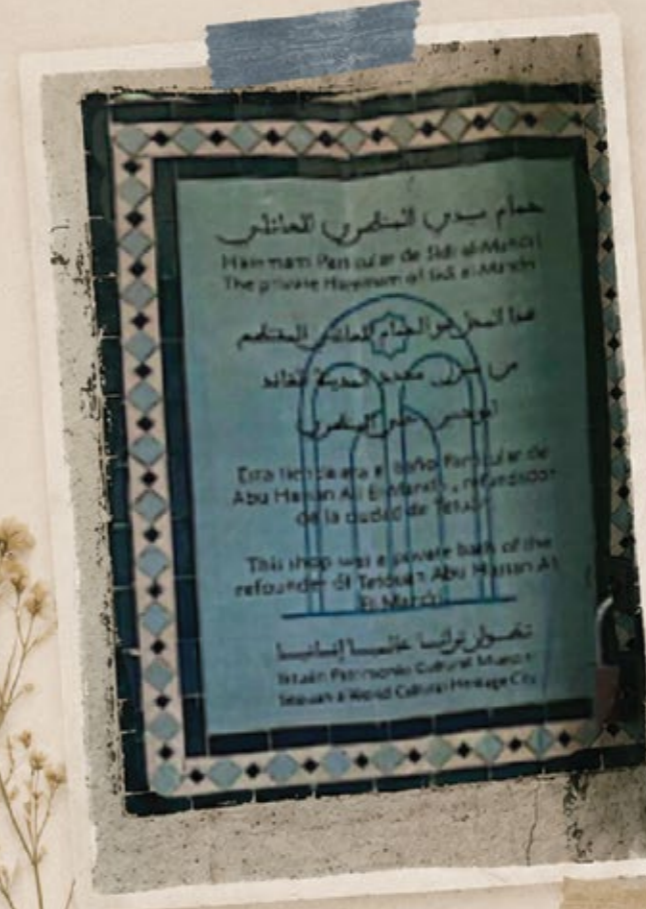 حمام سيدي المنظري العائلي
Hammam Particular de Sidi al-Mandri
The private Hammam of Sidi al-Mandri
هذا المحل هو الحمام العائلي
من منزل مجدد المدينة القائد
المنظري
Esta tienda era el baño Particular de
Abu Hassan Ali El Mandri, refundador
de la ciudad de Tetuán
This shop was a private bath of the
refounder of Tetouan Abu Hassan Al
El Mandri
تطوان تراثا عالميا إنسانيا
Tetuán Patrimonio Cultural Mundial
Tetouan a World Cultural Heritage City